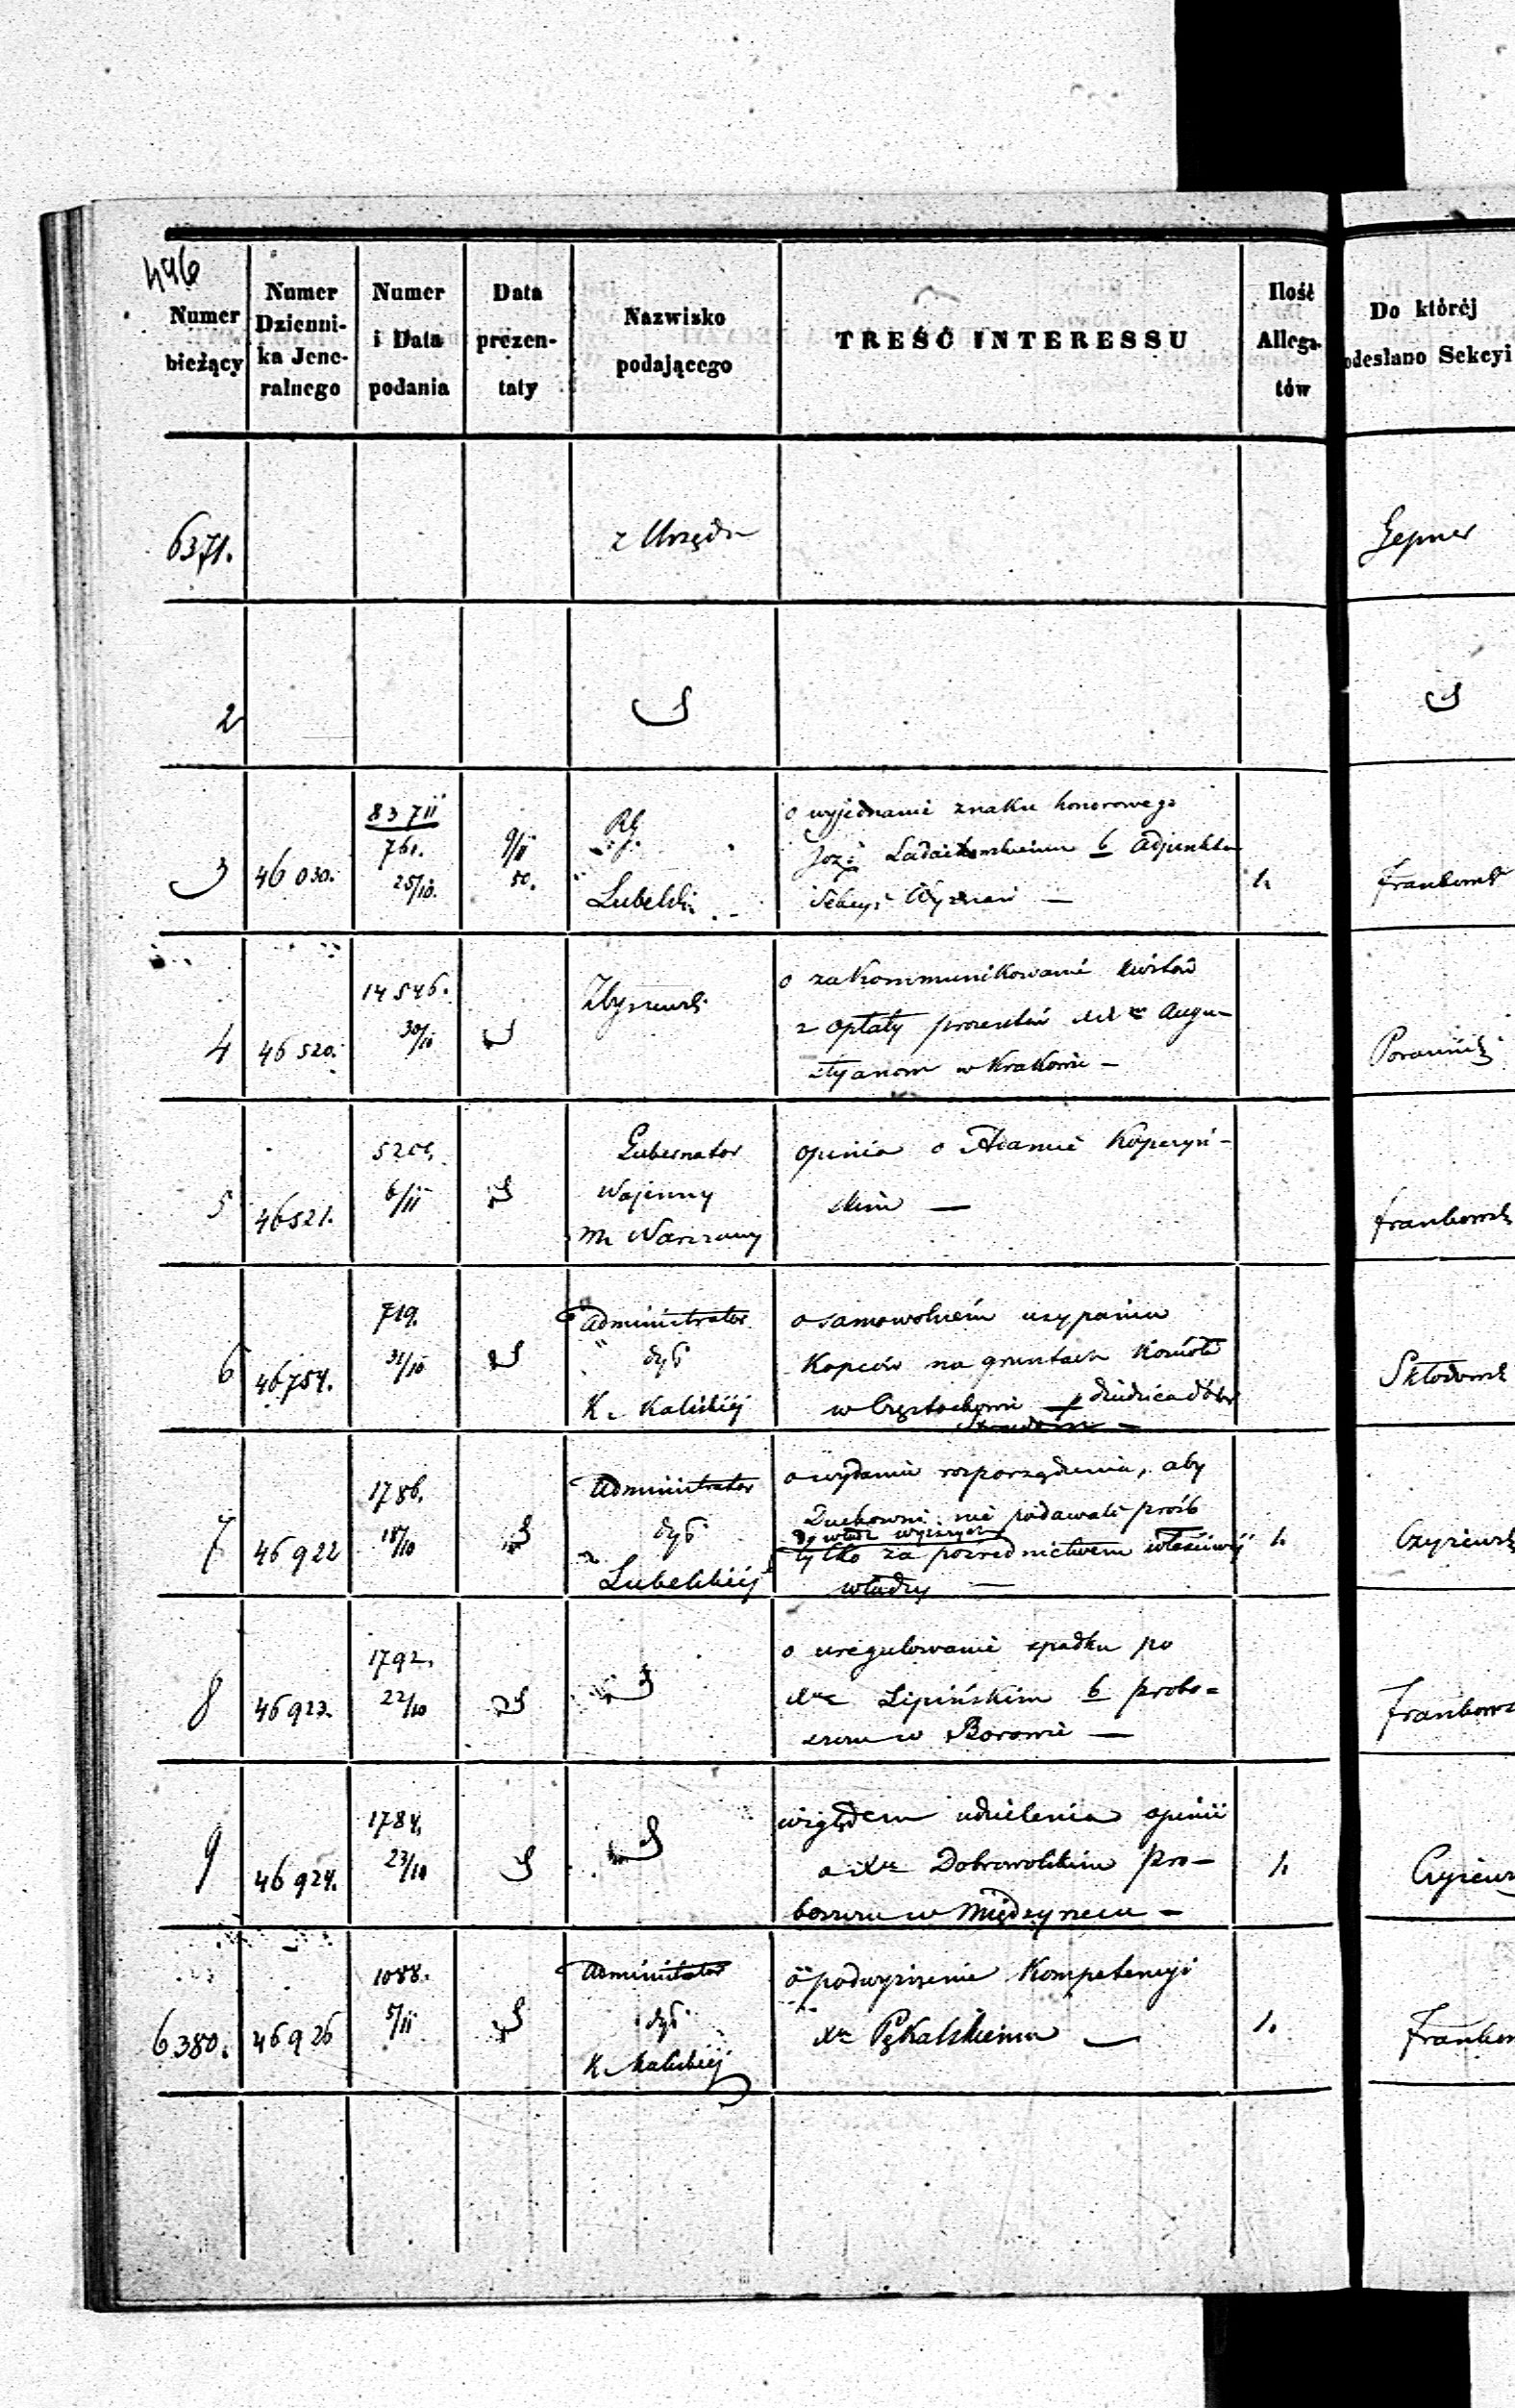 496
Numer bieżący
Numer Dzienni-ka Jene-ralnego
Numer i Data podania
Data prezen-taty
Nazwisko podającego
TREŚĆ INTERESSU
Ilość Allega-tów
Do któréj odesłano Sekcyi
6371.
z Urzędu
Gepner
2
3
46 030.
83711
761.
25/10.
9/11
50.
RG
Lubelski
o wyjednanie znaku honorowego
b Adjunktu
Sekcyi Wyznań —
1.
Frankowsk
4
46 520.
14546.
30/10
Zbyszewski
o zakommunikowanie kwitów
z opłaty procentów XX Augu-
styanom w Krakowie —
5
46521.
6/11
Gubernator
Wojenny
M. Warszawy
opinia o Adamie Kopczyń-
skim —
Frankowsk
6
46754.
719.
31/10
Administrator
dyec
K. Kaliskiéj
o samowolném usypaniu
Kopców na gruntach Kościoła
w Częstochowie — dziedzica dóbr
Skłodowsk
7
46922
1786.
18/10
Administrator
dyec
Lubelskiéj
o wydanie rozporządzenia, aby
Duchowni nie podawali próśb
do władz wyższych
tylko za pośrednictwem właściwéj
władzy —
1.
Czyżewsk
8
46923.
1792.
22/10
o uregulowanie spadku po
Xie Lipińskim b probo=
szczu w Borowie —
Frankows
9
46924.
1784.
23/10
względem udzielenia opinii
o Xie Dobrowolskim Pro-
boszczu w Międzyrzecu —
1.
Czyżews
6380.
46926
1088.
5/11
Administrator
dyec
K. Kaliskiéj
o podwyższenie Kompetencyi
Xu Pękalskiemu —
1.
Frankow